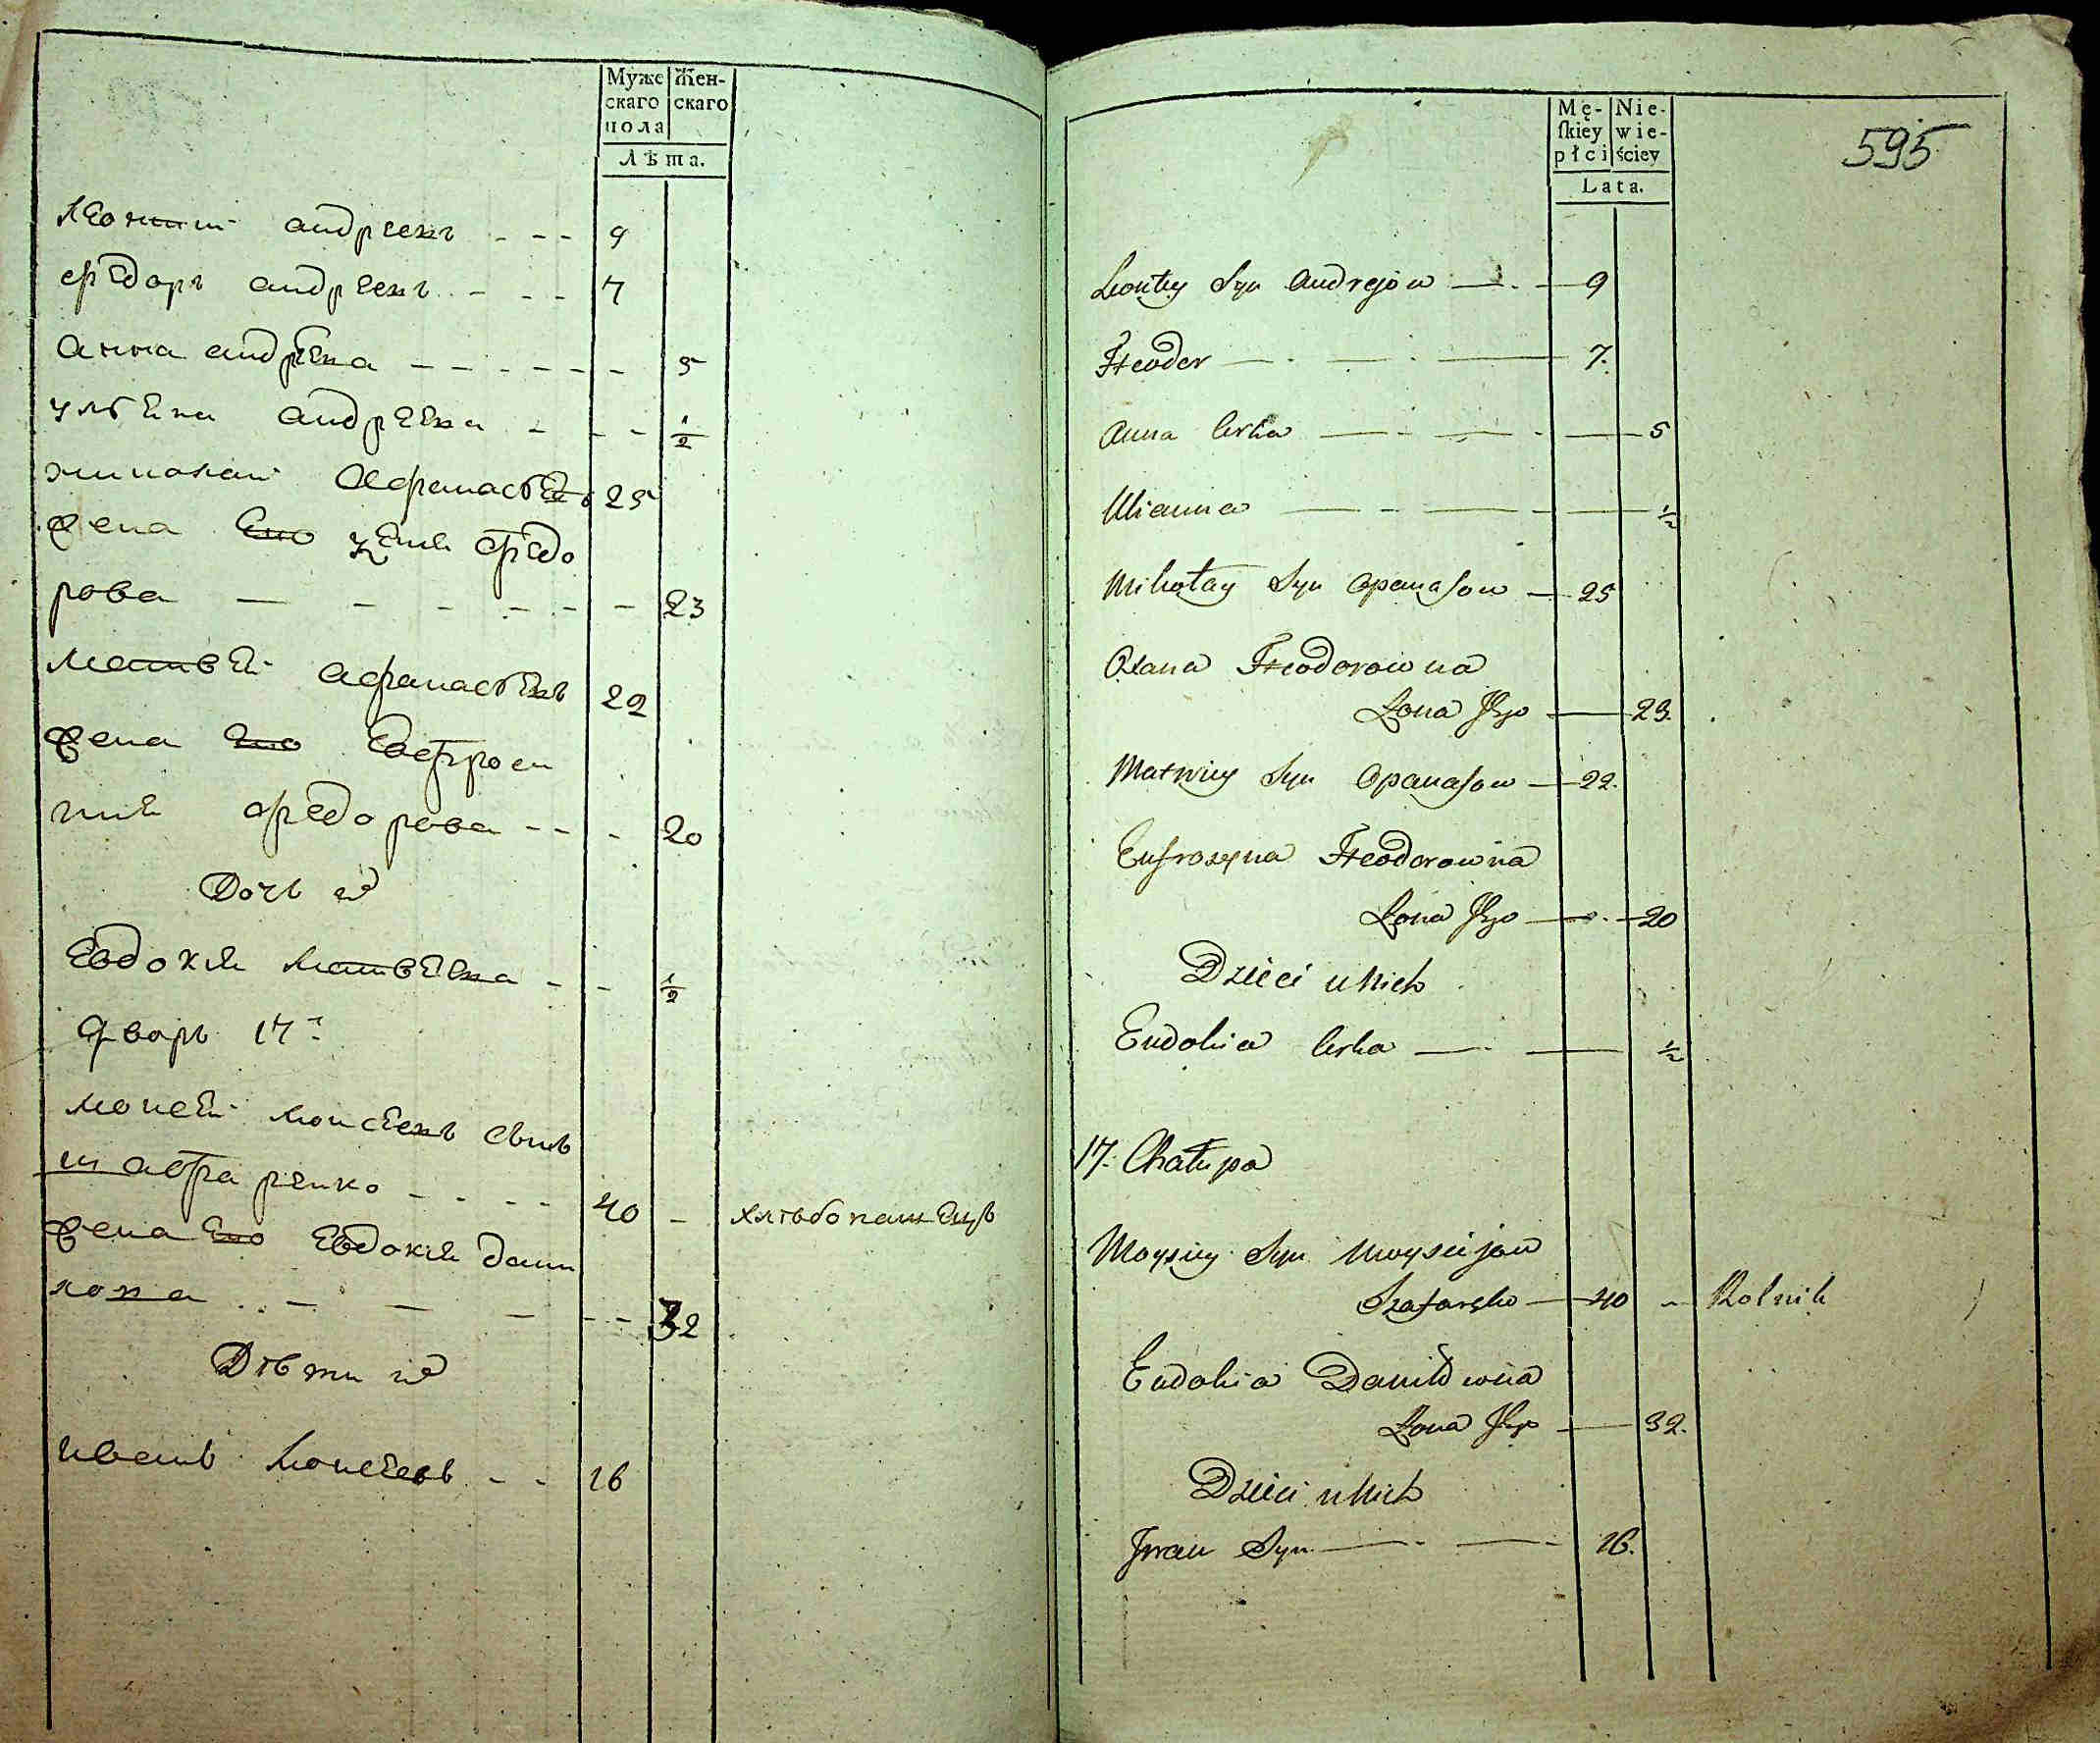 Муже
скаго
пола
Жен-
скаго
Лѣта.
Леонтий андреевъ - - - 9
Ѳедоръ андреевъ - - - 7
Анна андреева - - - - - - 5
улѣяна андреева - - - 1/2
Николай Афанасьевъ 25
жена Его Ѳедо
рова - - - - - - 23
Матвей Афанасьевъ 22
жена Его Евфроси
ния Ѳедорова - - - 20
Дочь
Евдокия Матвеева - - 1/2
Дворъ 17й
Моисей Моисеевъ сынъ
40 - хлѣбопашецъ
жена Его Евдокия Дани
лова - - - - - 32
Дѣти
Иванъ Моисеевъ - - 16
595
Mę-
skiey
płci
Nie-
wie-
ściey
Lata.
Leontey Syn Andrejow 9
Fteodor 7.
Anna Corka 5
Ulianna 1/2
Mikołay Syn Opanasow 25
Fteodorowna
Żona Jego 23.
Matwiey Syn Opanasow 22.
Eufrozyna Fteodorowna
Żona Jego 20
Dzieci u Nich
Eudokia Corka 1/2
17. Chałupa
Moysiey Syn Moysiejow
40 - Rolnik
Eudokia Daniłowna
Żona Jego 32.
Dzieci u Nich
Jwan Syn 16.